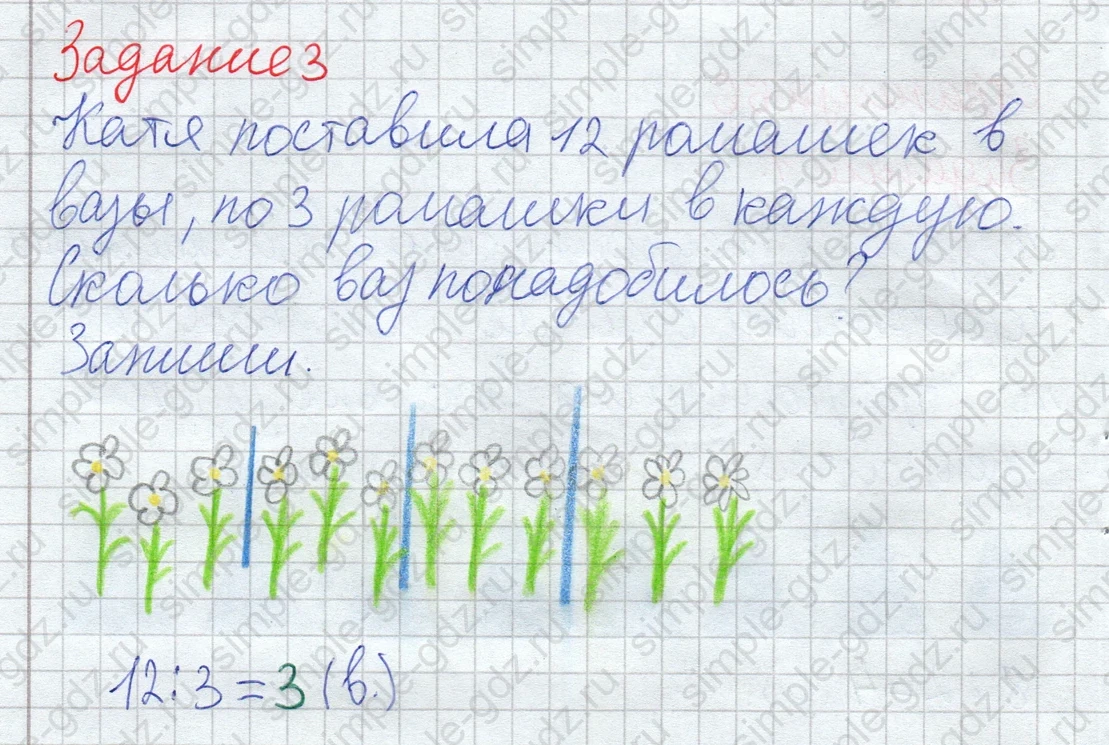 Задание 3
Катя поставила 12 ромашек в
вазы, по 3 ромашки в каждую.
Сколько ваз понадобилось?
Запиши.
12:3=3 (в.)
simple-gdz.ru